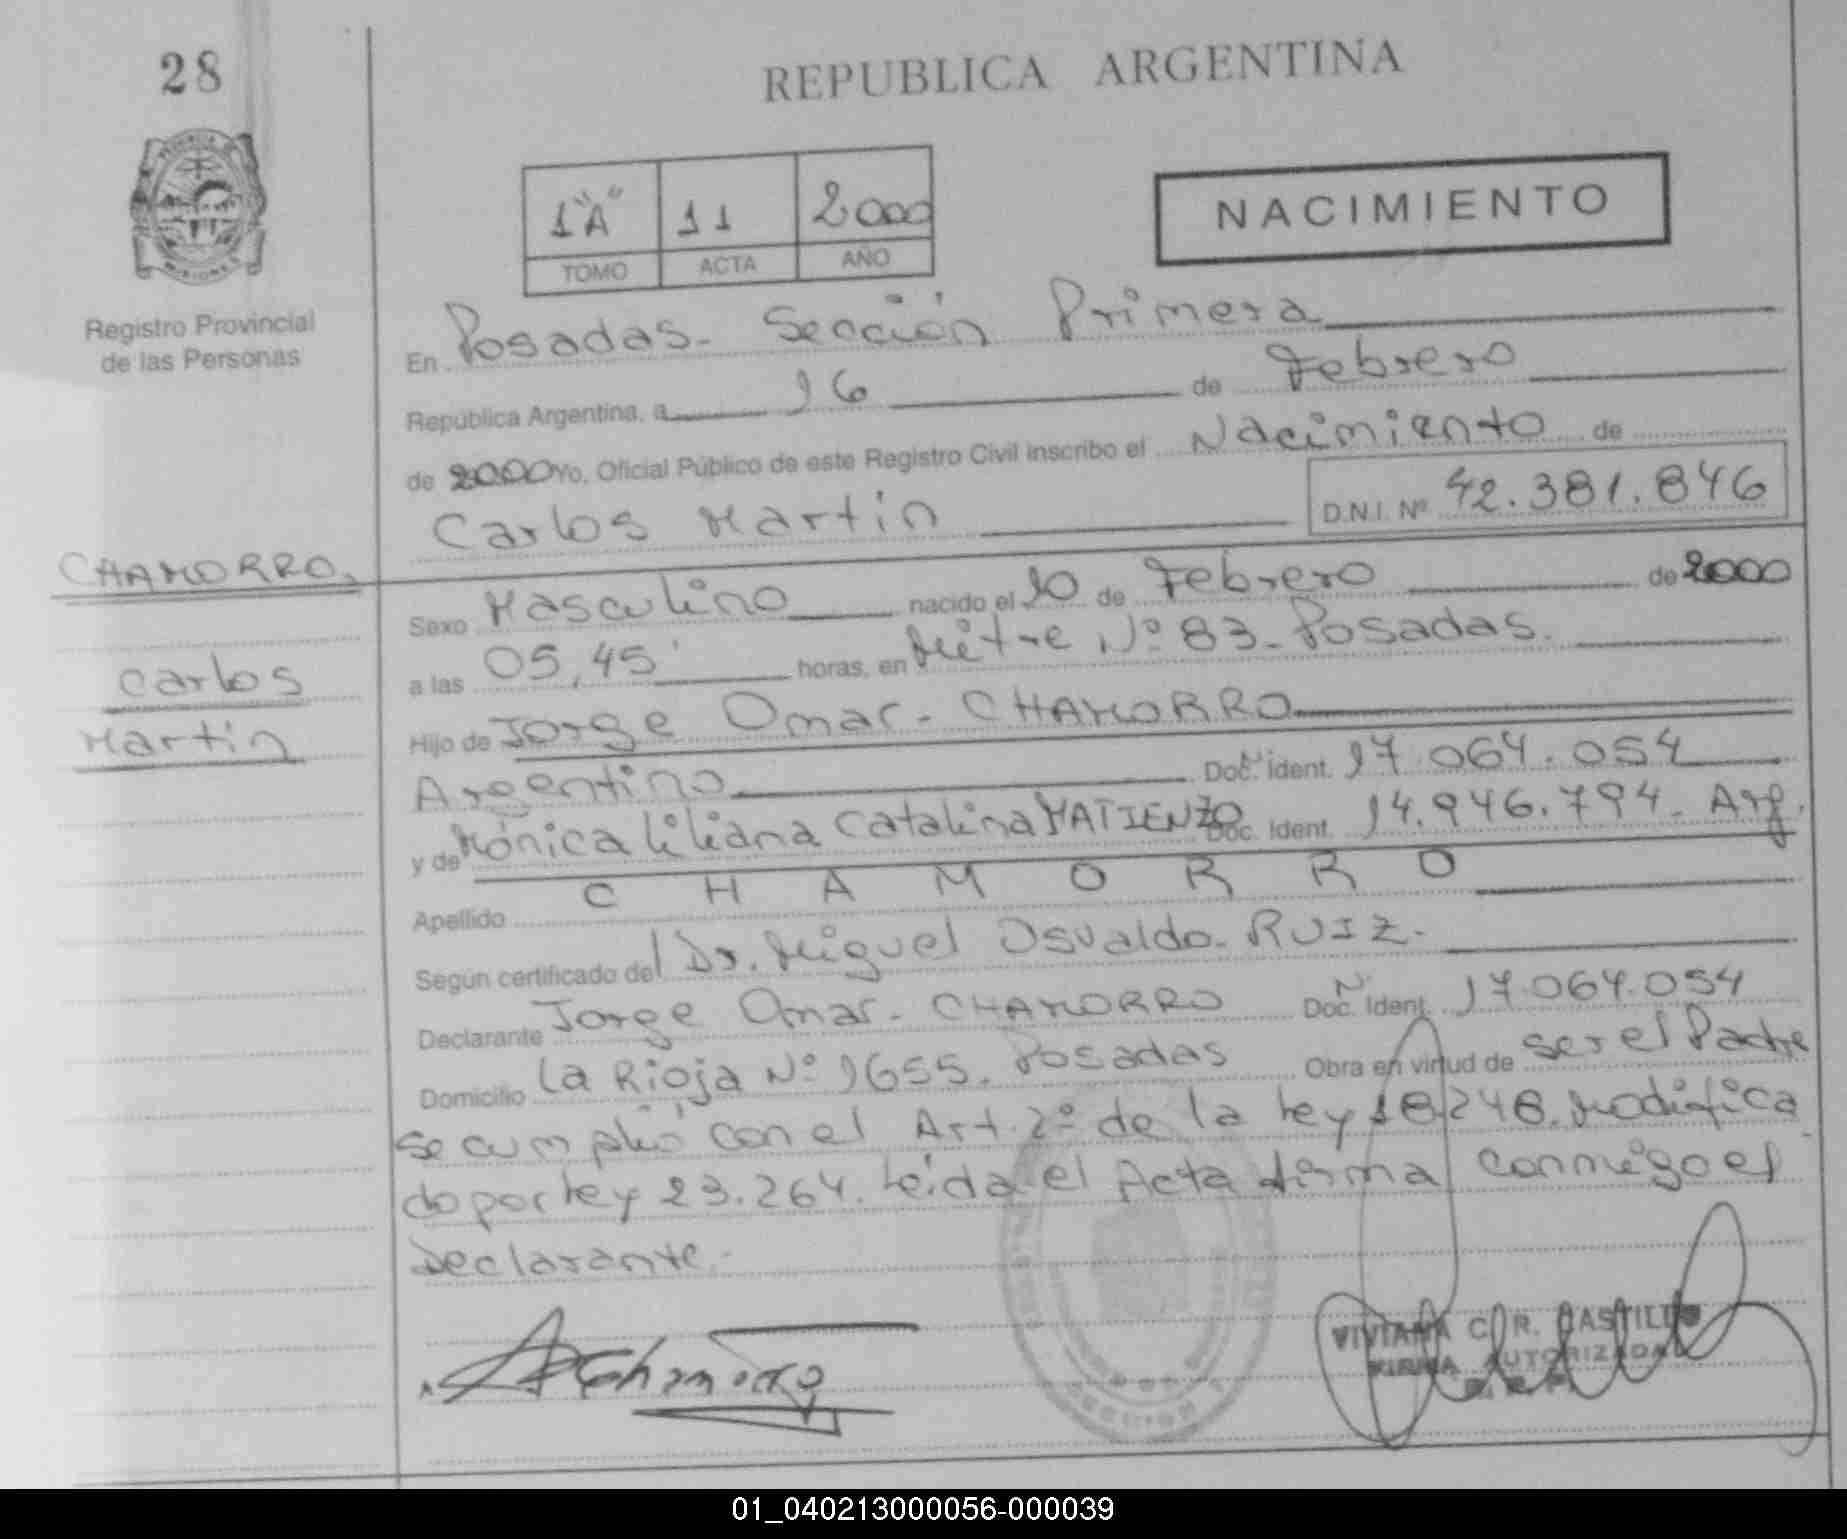 28
REPUBLICA ARGENTINA
1"A" 11 2000
TOMO ACTA AÑO
NACIMIENTO
Registro Provincial
de las Personas
En Posadas - Sección Primera
República Argentina, a 16 de Febrero
de 2000 Yo, Oficial Público de este Registro Civil inscribo el Nacimiento de
Carlos Martín D.N.I. Nº 42.381.846
CHAMORRO.
Carlos
Martín
Sexo Masculino nacido el 10 de Febrero de 2000
a las 05,45' horas, en Mitre Nº 83 - Posadas.
Hijo de Jorge Omar - CHAMORRO
Argentino Doc. Ident. 17.064.054
y de Mónica Liliana Catalina MATIENZO Doc. Ident. 14.946.794 - Arg.
Apellido C H A M O R R O
Según certificado del Dr. Miguel Osvaldo - RUIZ.
Declarante Jorge Omar - CHAMORRO Doc. Ident. 17.064.054
Domicilio La Rioja Nº 1655 - Posadas Obra en virtud de ser el Padre
se cumplió con el Art. 2º de la Ley 18.248. Modifica
do por Ley 23.264. Leída el Acta firma conmigo el
Declarante -
VIVIANA C. R. CASTILLO
FIRMA AUTORIZADA
01_040213000056-000039